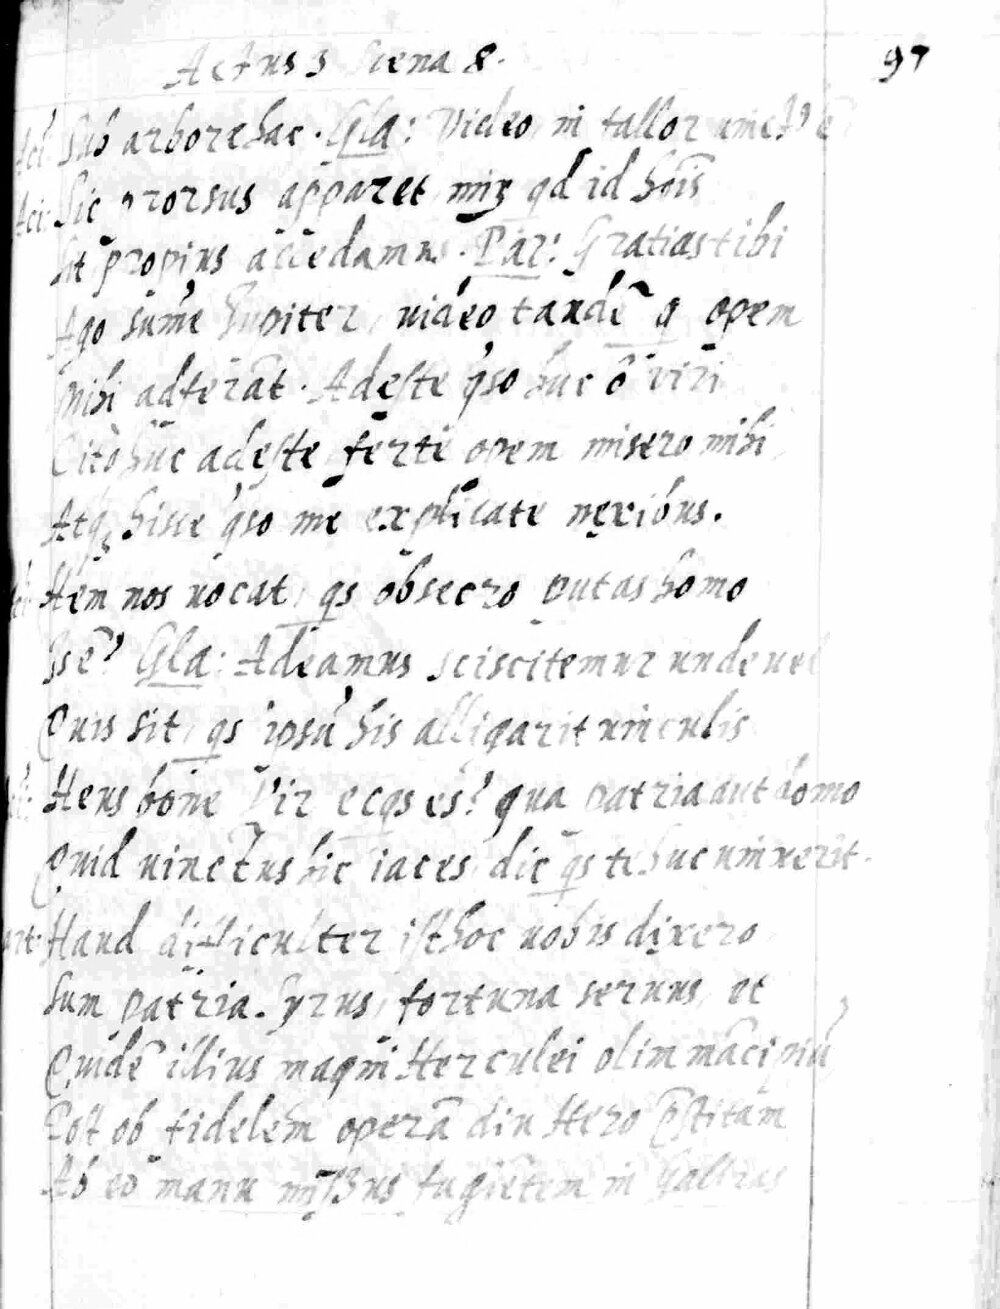 Actus 3 Scena 8. 97
Sub arbore hac. Gla: Video ni fallor
Sic prorsus apparet, qd id hōis
Sit propius accedamus. Par: Gratias tibi
Ago sum̄e Jupiter, video tandē q opem
Mihi adferāt. Adeste q'so huc ô viri
Citò huc adeste ferte opem misero mihi
Atq; hisce q'so me explicate nexibus.
Hem nos vocat, qs obsecro putas homo
Gla: Adeamus sciscitemur unde
Quis sit, qs ipsū his alligarit vinculis
Heus bone Vir ecqs es? qua patria aut domo
Quid vinctus hic iaces, dic qs te huc vinxerit.
Haud difficulter isthoc vobis dixero
Sum patria Syrus, fortuna servus, et
Quidē illius magni Herculei olim mācipiū
Post ob fidelem operā diu Hero
Ab eo manu fugiētem in